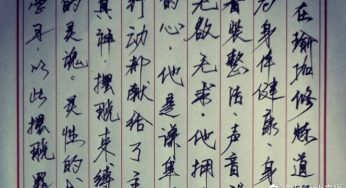 在瑜伽修炼道
为身体健康、身
着装整洁、声音
无欲无求。他拥
的心，他是谦卑
行动都献给了主
真神，摆脱束缚
的灵魂。灵性的
寻，以此摆脱